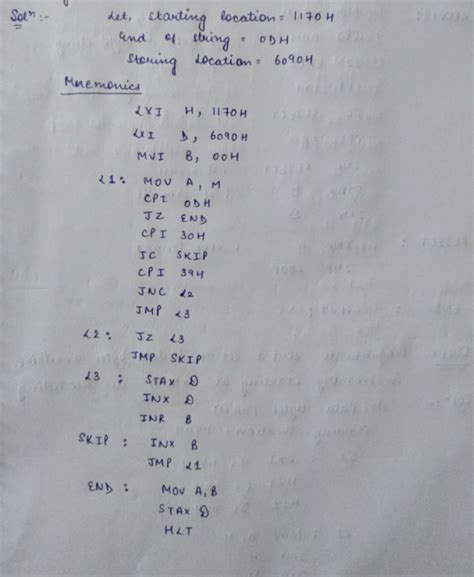 Solⁿ:- Let, starting location = 1170H
End of string = 0DH
Storing Location = 6090H
Mnemonics
LXI H, 1170H
LXI D, 6090H
MVI B, 00H
L1: MOV A, M
CPI 0DH
JZ END
CPI 30H
JC SKIP
CPI 39H
JNC L2
JMP L3
L2: JZ L3
JMP SKIP
L3 : STAX D
INX D
INR B
SKIP : INX B
JMP L1
END : MOV A, B
STAX D
HLT